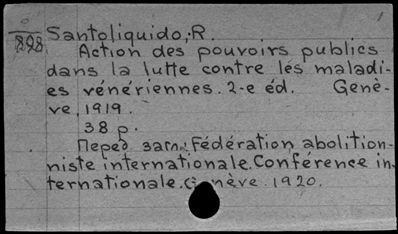 8898
Santoliquido, R.
Action des pouvoirs publics
dans la lutte contre les maladi-
es vénériennes. 2-e éd. Genè-
ve, 1919.
38 p.
Перед загл.: Fédération abolition-
niste internationale. Conférence in-
ternationale. Genève. 1920.